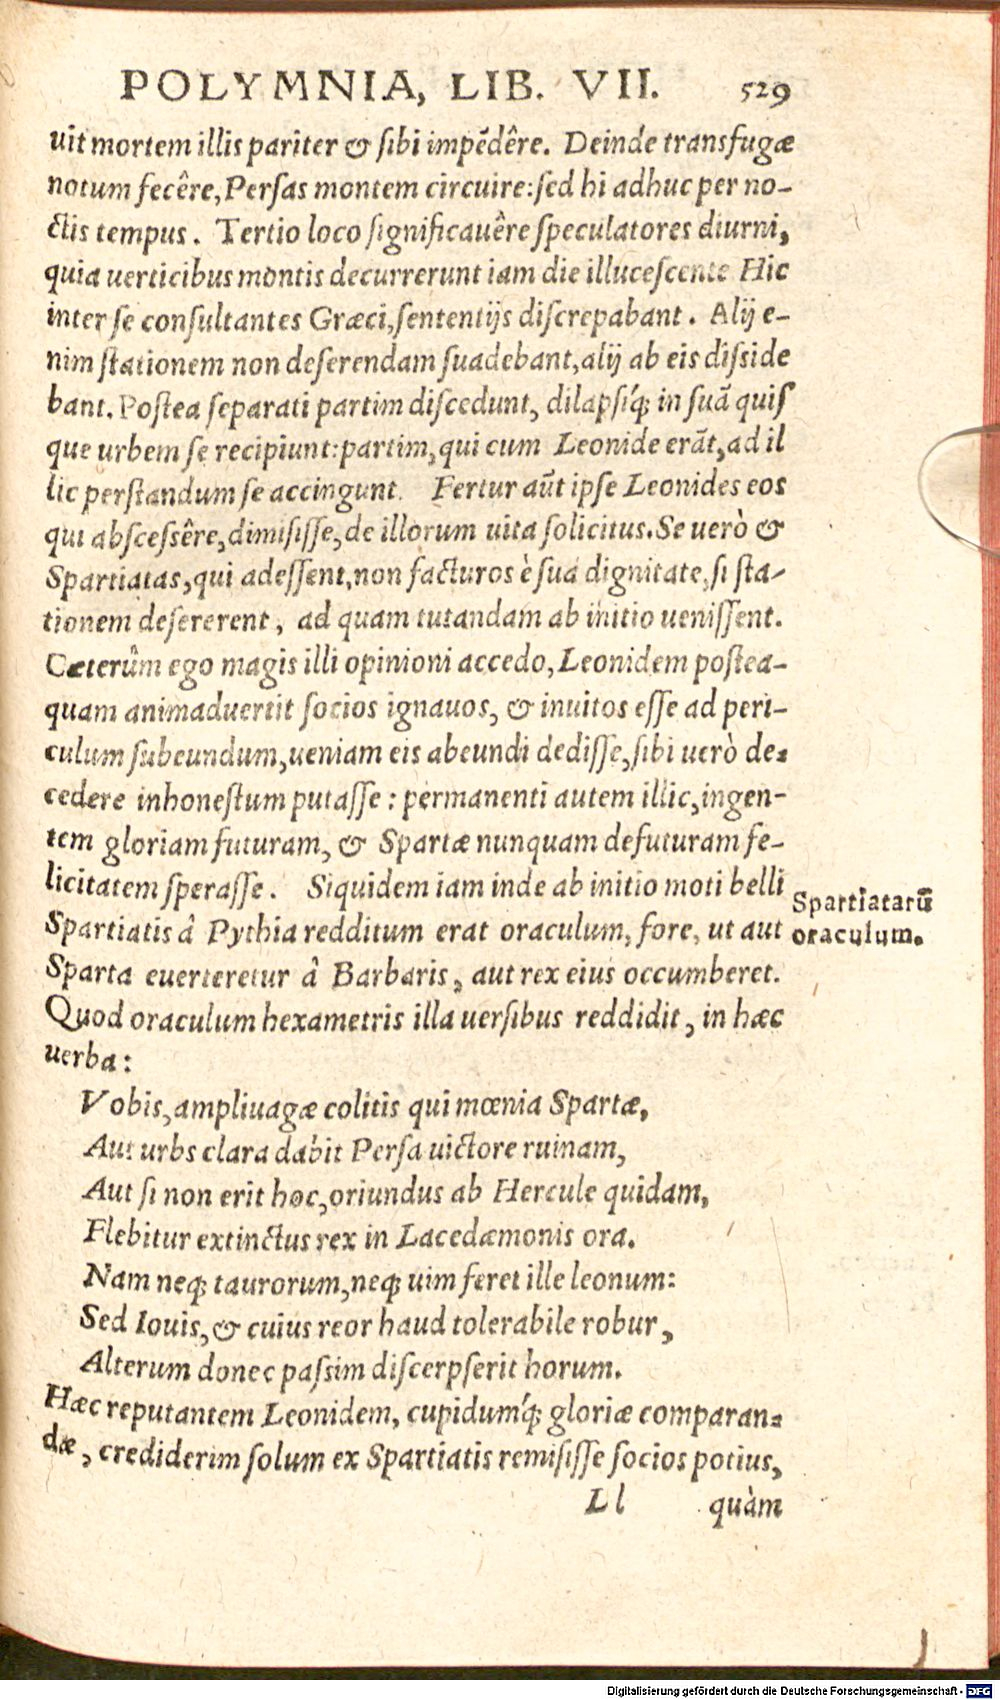 POLYMNIA, LIB. VII. 529
uit mortem illis pariter & sibi impẽdêre. Deinde transfugæ
notum fecêre, Persas montem circuire: sed hi adhuc per no-
ctis tempus. Tertio loco significauêre speculatores diurni,
quia uerticibus montis decurrerunt iam die illucescente Hic
inter se consultantes Græci, sententijs discrepabant. Alij e-
nim stationem non deserendam suadebant, alij ab eis disside
bant. Postea separati partim discedunt, dilapsíq; in suã quis
que urbem se recipiunt: partim, qui cum Leonide erãt, ad il
lic perstandum se accingunt. Fertur aũt ipse Leonides eos
qui abscessêre, dimisisse, de illorum uita solicitus. Se uerò &
Spartiatas, qui adessent, non facturos è sua dignitate, si sta-
tionem desererent, ad quam tutandam ab initio uenissent.
Cæterûm ego magis illi opinioni accedo, Leonidem postea-
quam animaduertit socios ignauos, & inuitos esse ad peri-
culum subeundum, ueniam eis abeundi dedisse, sibi uerò de-
cedere inhonestum putasse: permanenti autem illic, ingen-
tem gloriam futuram, & Spartæ nunquam defuturam fe-
licitatem sperasse. Siquidem iam inde ab initio moti belli
Spartiatis â Pythia redditum erat oraculum, fore, ut aut
Sparta euerteretur â Barbaris, aut rex eius occumberet.
Quod oraculum hexametris illa uersibus reddidit, in hæc
uerba:
Spartiatarũ
oraculum.
Vobis, ampliuagæ colitis qui mœnia Spartæ,
Aut urbs clara dabit Persa uictore ruinam,
Aut si non erit hoc, oriundus ab Hercule quidam,
Flebitur extinctus rex in Lacedæmonis ora.
Nam neq; taurorum, neq; uim feret ille leonum:
Sed Iouis, & cuius reor haud tolerabile robur,
Alterum donec passim discerpserit horum.
Hæc reputantem Leonidem, cupidumq́; gloriæ comparan-
dæ, crediderim solum ex Spartiatis remisisse socios potius,
Ll quàm
Digitalisierung gefördert durch die Deutsche Forschungsgemeinschaft - DFG